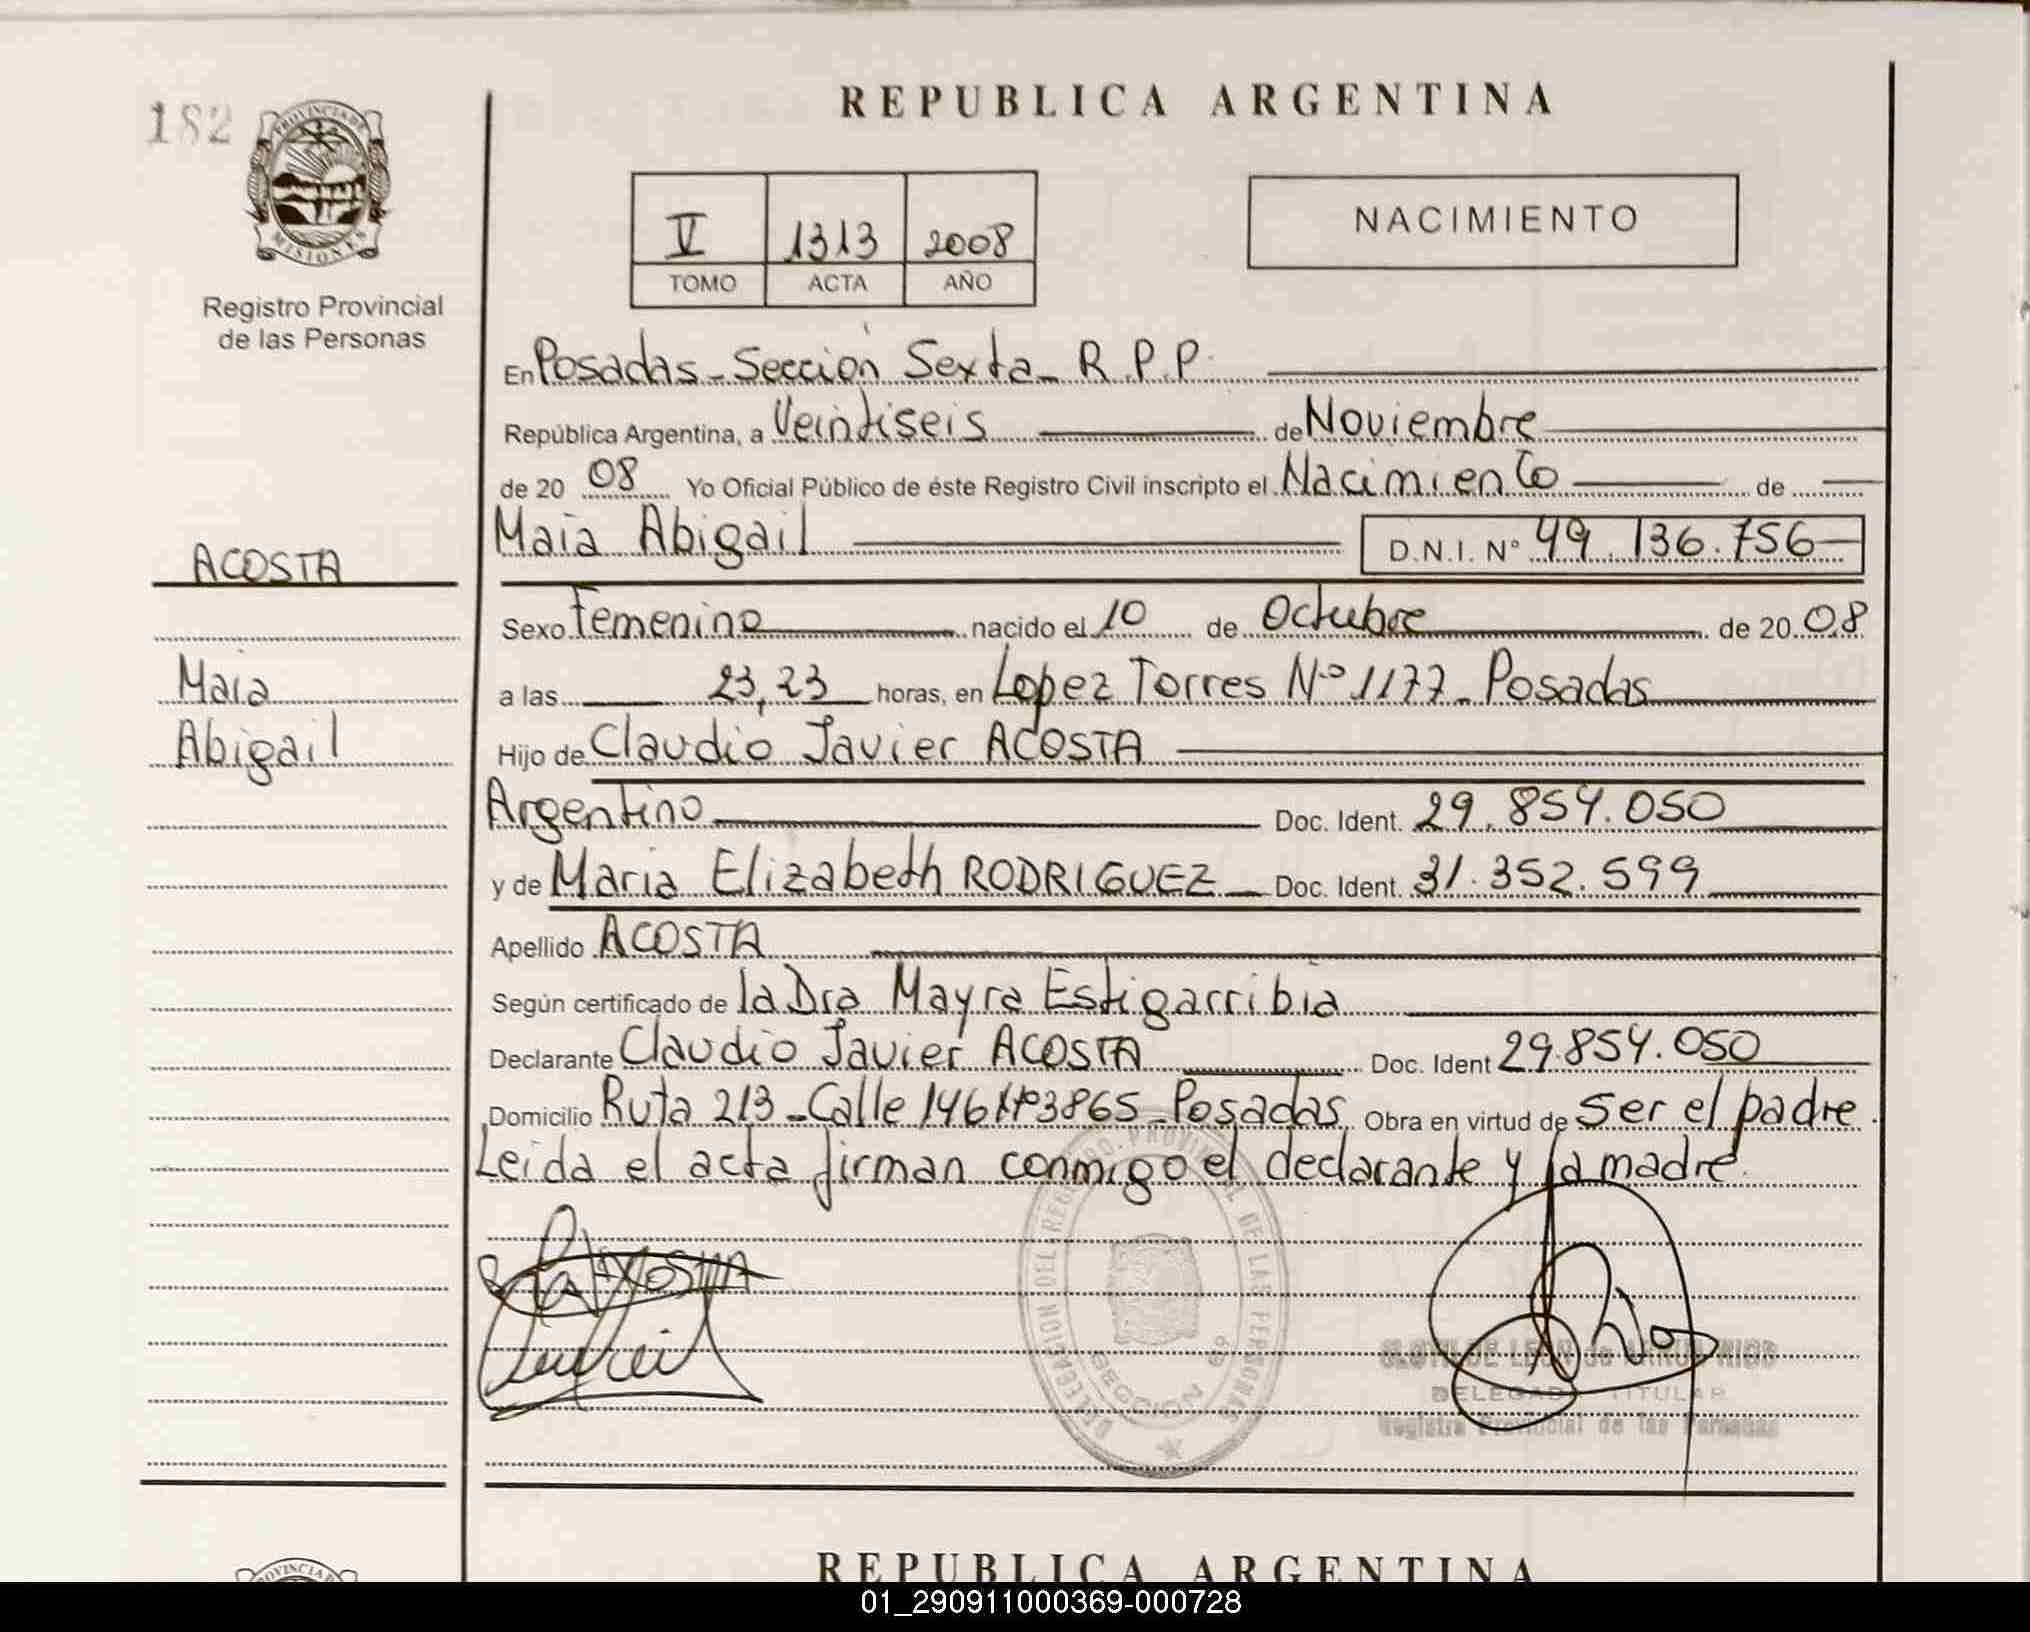 182
PROVINCIA DE
MISIONES
Registro Provincial
de las Personas
REPUBLICA ARGENTINA
V 1313 2008
TOMO ACTA AÑO
NACIMIENTO
En Posadas - Sección Sexta - R.P.P.
República Argentina, a Veintiseis de Noviembre
de 20 08 Yo Oficial Público de éste Registro Civil inscripto el Nacimiento de
Maia Abigail D.N.I. Nº 49.136.756
ACOSTA
Maia
Abigail
Sexo Femenino nacido el 10 de Octubre de 20 08
a las 23,23 horas, en Lopez Torres Nº 1177 - Posadas
Hijo de Claudio Javier ACOSTA
Argentino Doc. Ident. 29.854.050
y de Maria Elizabeth RODRIGUEZ Doc. Ident. 31.352.599
Apellido ACOSTA
Según certificado de la Dra Mayra Estigarribia
Declarante Claudio Javier ACOSTA Doc. Ident 29.854.050
Domicilio Ruta 213 - Calle 146 Nº 3865 - Posadas Obra en virtud de Ser el padre.
Leida el acta firman conmigo el declarante y la madre.
DELEGACION DEL REGISTRO PROVINCIAL DE LAS PERSONAS
SECCION 6º
DELEGADA TITULAR
Registro Provincial de las Personas
REPUBLICA ARGENTINA
01_290911000369-000728